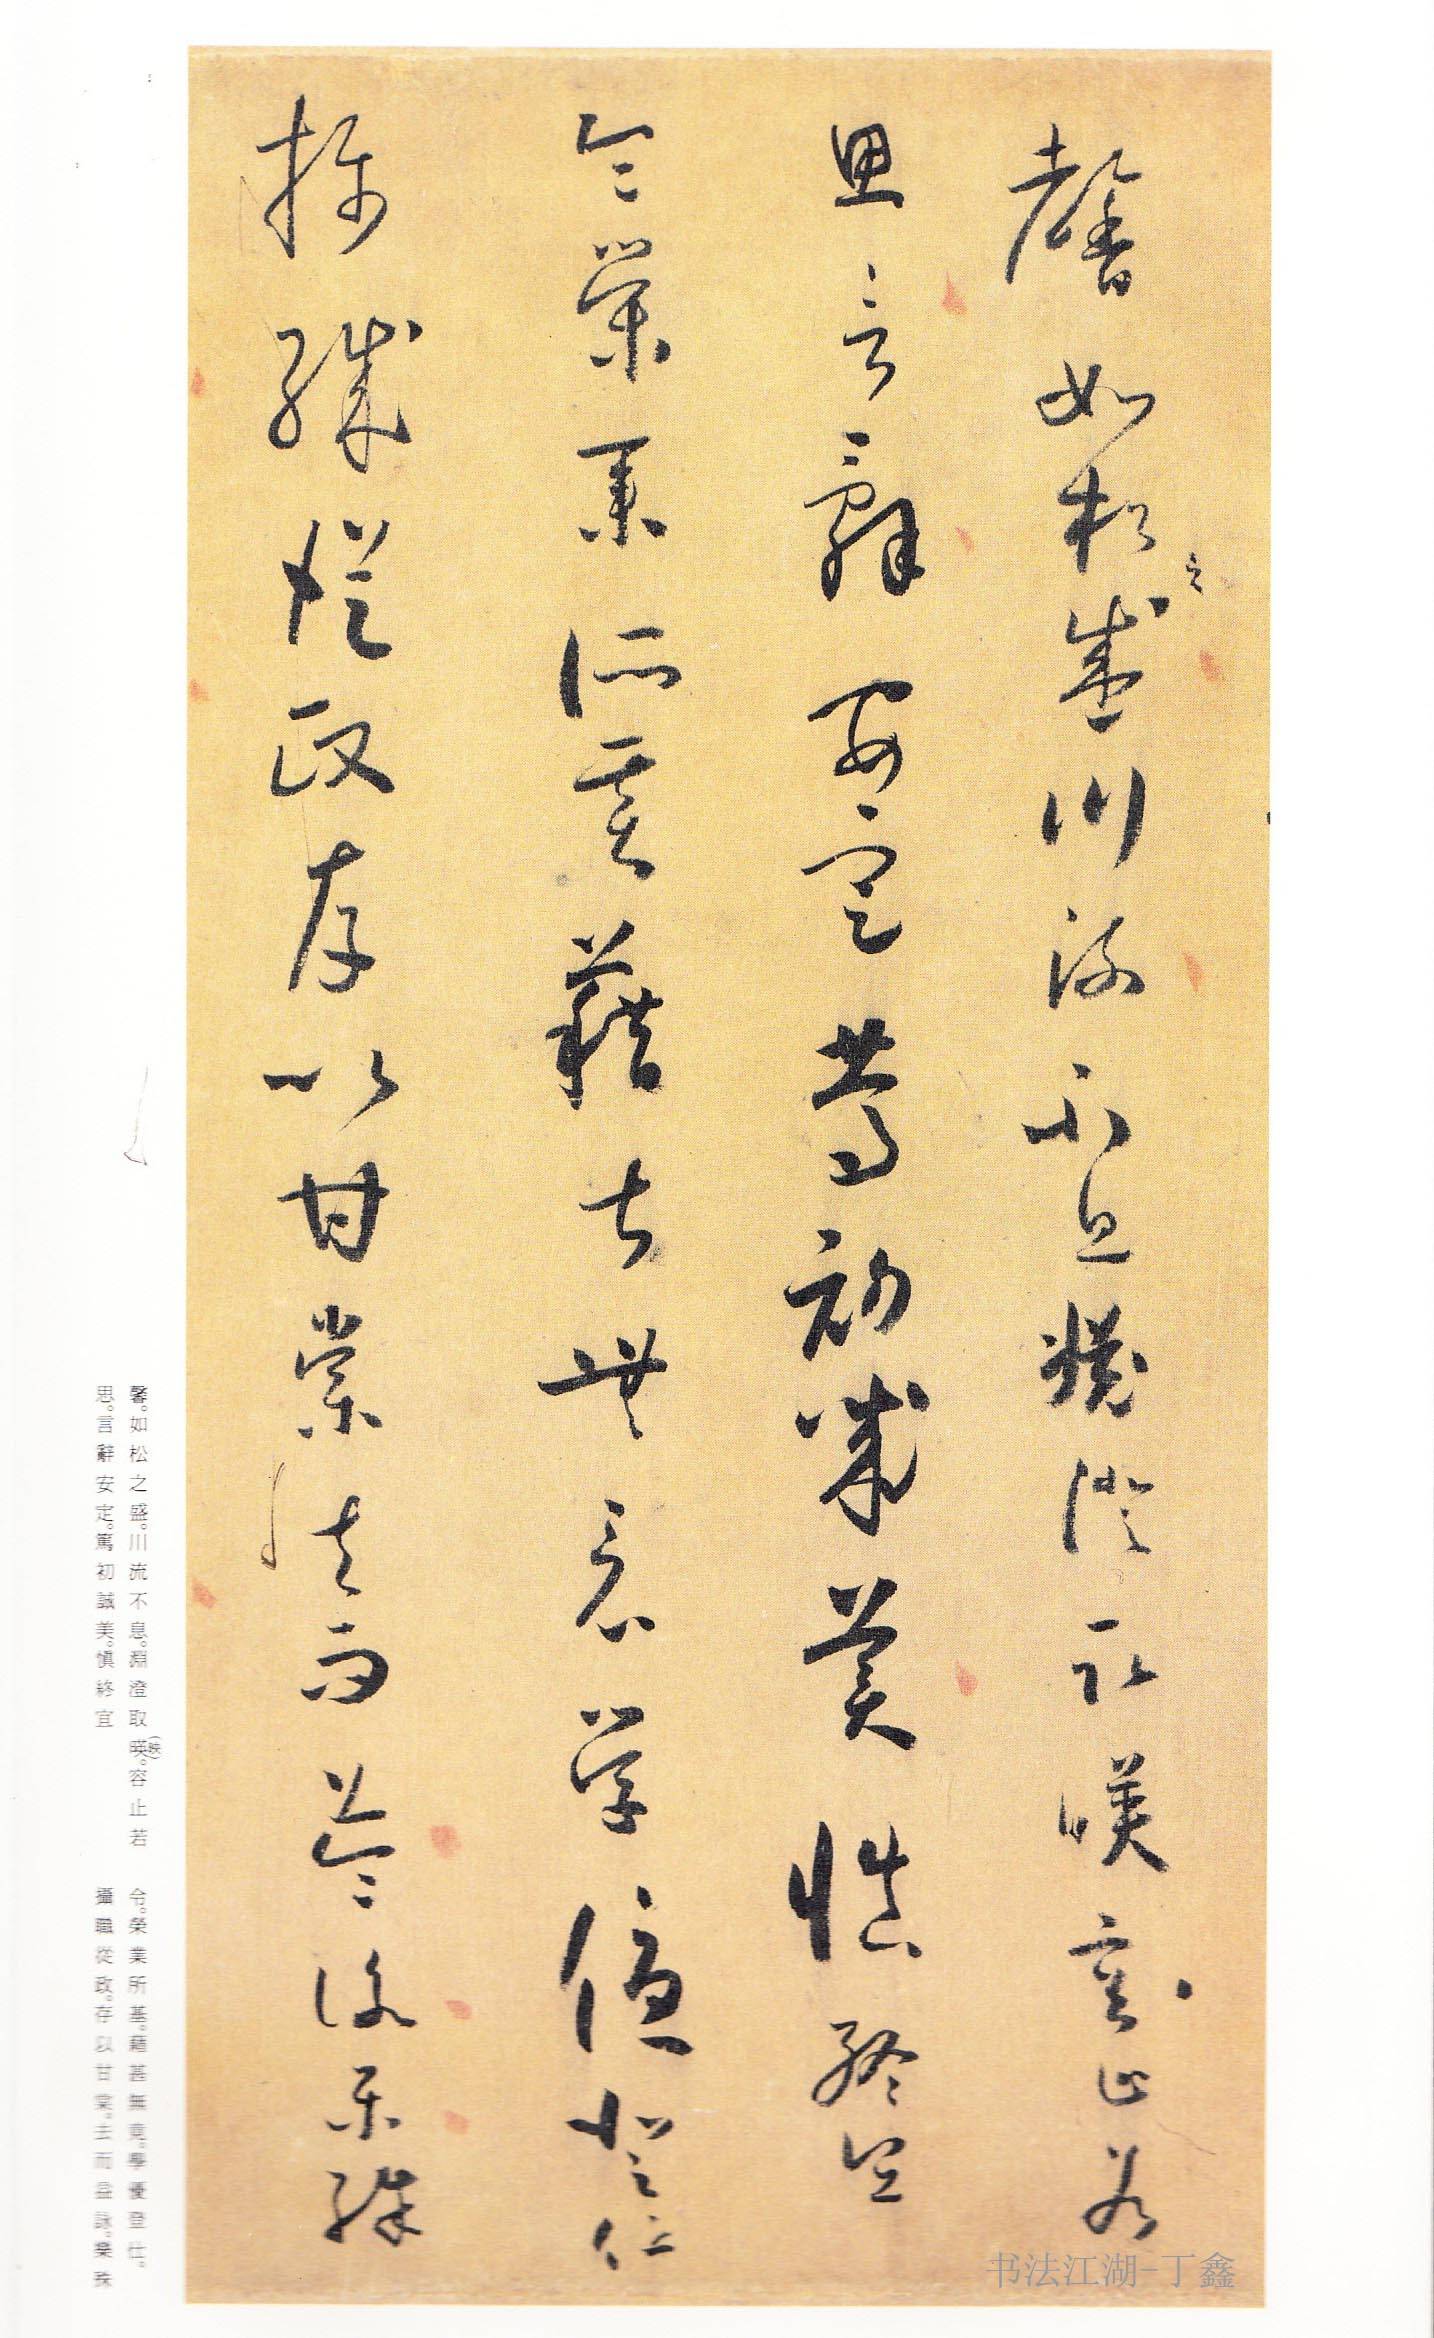 馨如松之盛川流不息淵澄取暎容止若
思言辭安定篤初誠美慎終宜
令榮業所基藉甚無竟學優登仕
攝職從政存以甘棠去而益詠樂殊
馨。如松之盛。川流不息。淵澄取暎(映)。容止若
思。言辭安定。篤初誠美。慎終宜
令。榮業所基。藉甚無竟。學優登仕。
攝職從政。存以甘棠。去而益詠。樂殊
书法江湖-丁鑫